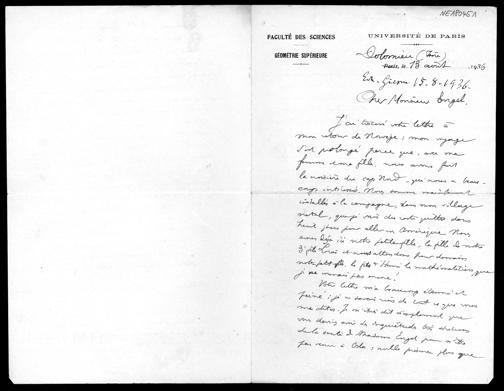 NE180451
FACULTÉ DES SCIENCES
GÉOMÉTRIE SUPÉRIEURE
UNIVERSITÉ DE PARIS
Dolomieu (Isère)
Paris, le 13 août 1936
15.8.1936.
Cher Monsieur Engel,
J'ai trouvé votre lettre à
mon retour de Norvège ; mon voyage
s'est prolongé parce que, avec ma
femme et ma fille, nous avons fait
la croisière du cap Nord, qui nous a beau-
coup intéressés. Nous sommes maintenant
installés à la campagne, dans mon village
natal, que je vais du reste quitter dans
huit jours pour aller en Amérique. Nous
avons déjà ici notre petite fille, la fille de notre
fils et nous attendons pour demain
notre fils Henri le mathématicien, que
je ne verrai pas moins !
Votre lettre m'a beaucoup étonné et
peiné ; je ne savais rien de tout ce que vous
me dites. Je
vous aviez des inquiétudes
de la santé de Madame Engel
pas venir à Oslo ;